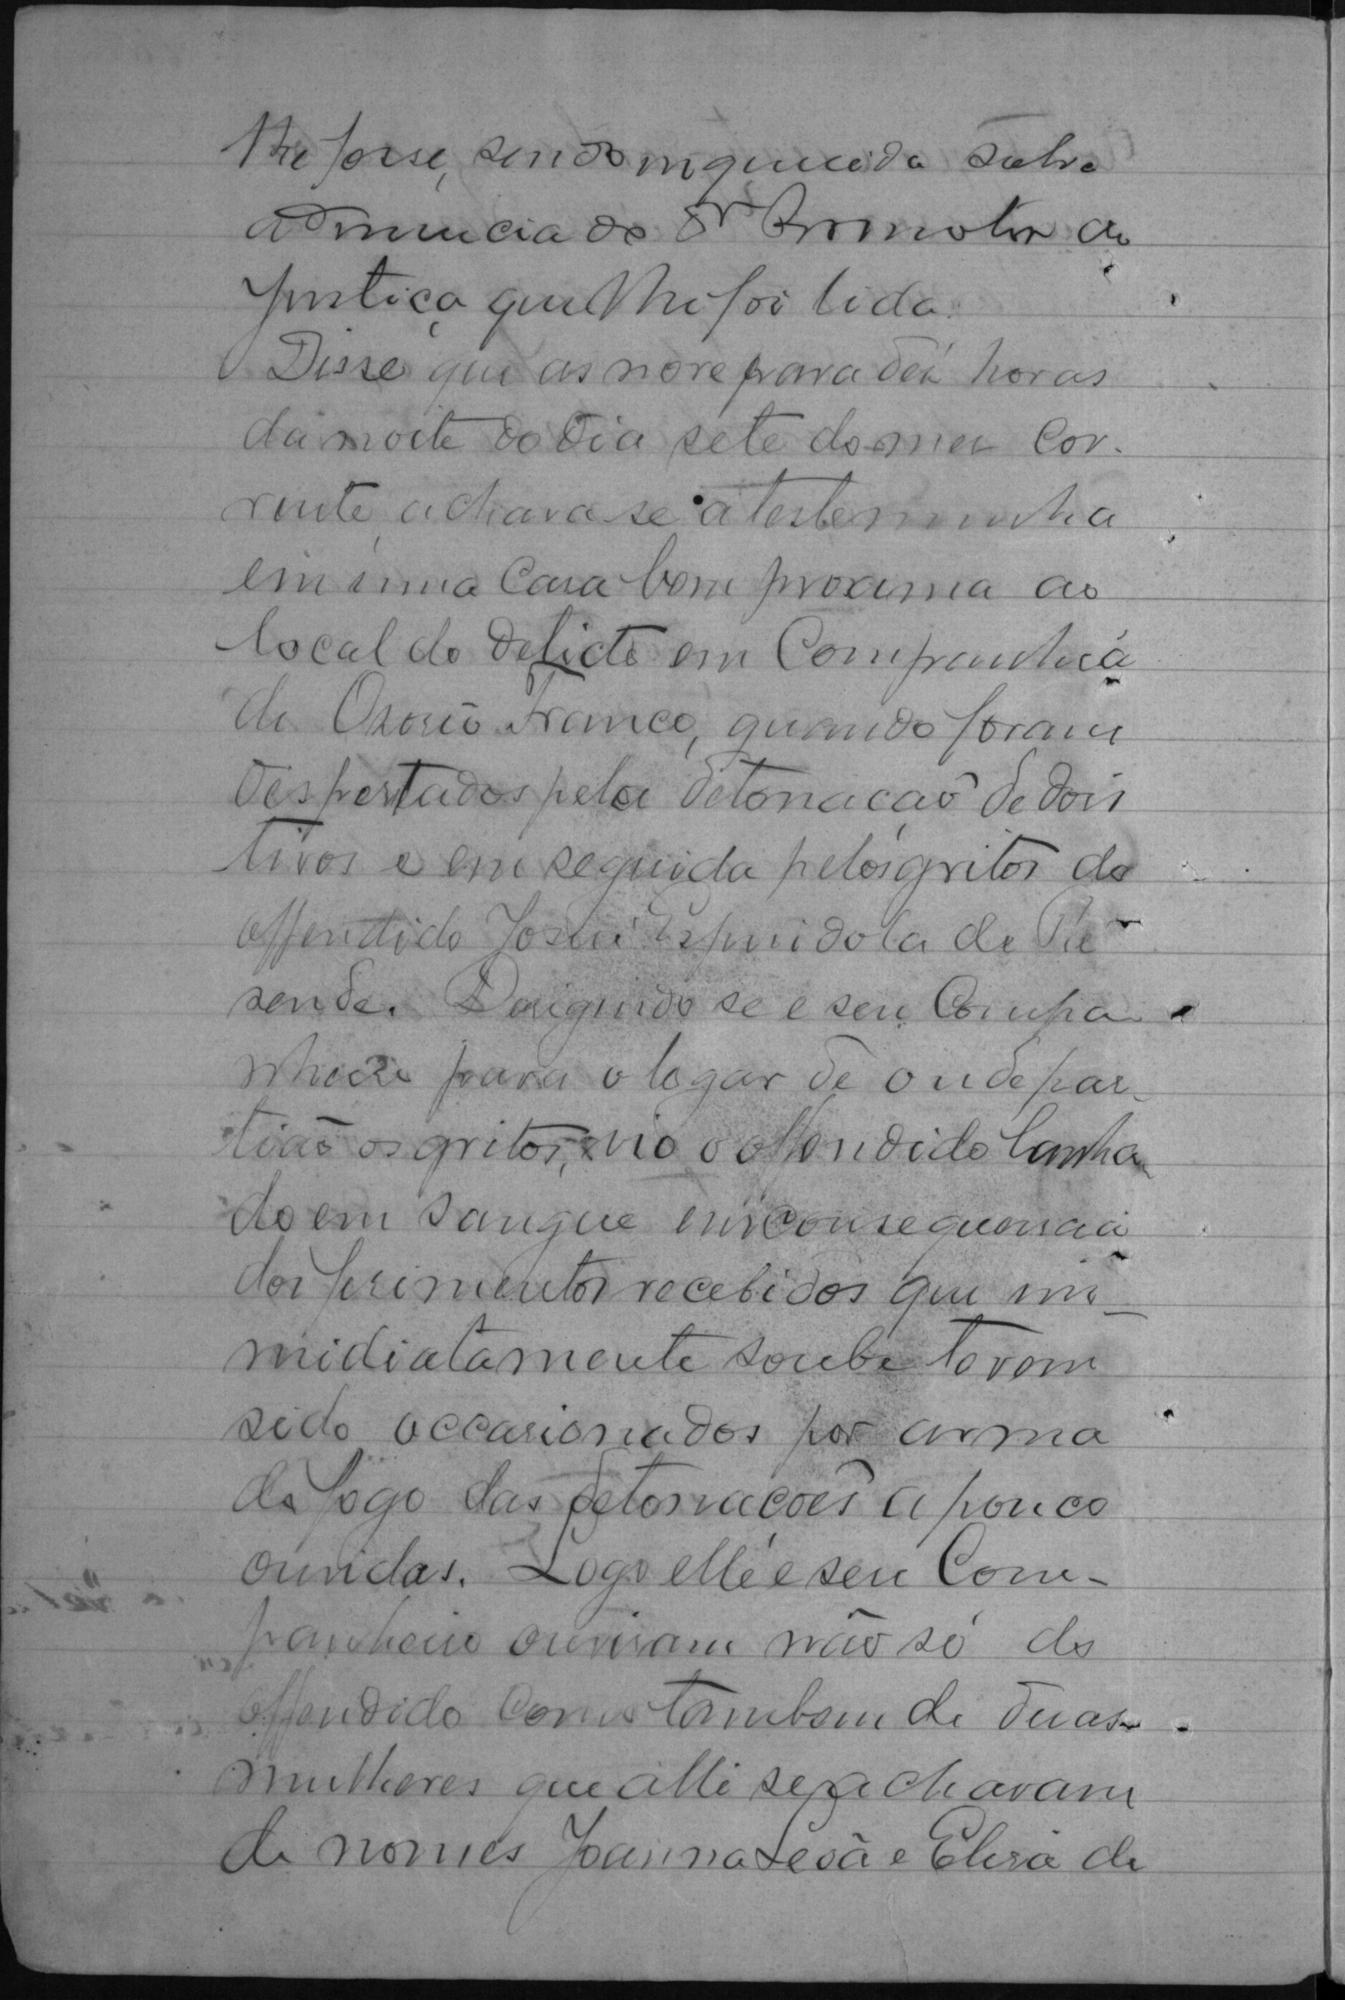 lhe fosse, sendo inquerida sobre
a denuncia do Dr Promotor da
Justiça que lhe foi lida.
Disse que as nove para dez horas
da noite do dia sete do mez cor-
rente, achava se a testemunha
em uma Casa bem proxima ao
local do delicto em Companhia
de Ozorio Franco, quando foram
despertados pela detonação de dois
tiros e em seguida pelos gritos do
offendido José Espindola de Re
sende. Dirigindo se e seu Compa
nheiro para o logar de onde par-
tião os gritos, vio o offendido banha
do em sangue em consequencia
dos ferimentos recebidos que im-
midiatamente soube terem
sido occasionados por arma
de fogo das detonações a pouco
ouvidas. Logo elle e seu Com-
panheiro ouviram não só do
offendido como tambem de duas
mulheres que alli se achavam
de nomes Joanna Leôa e Elisa de